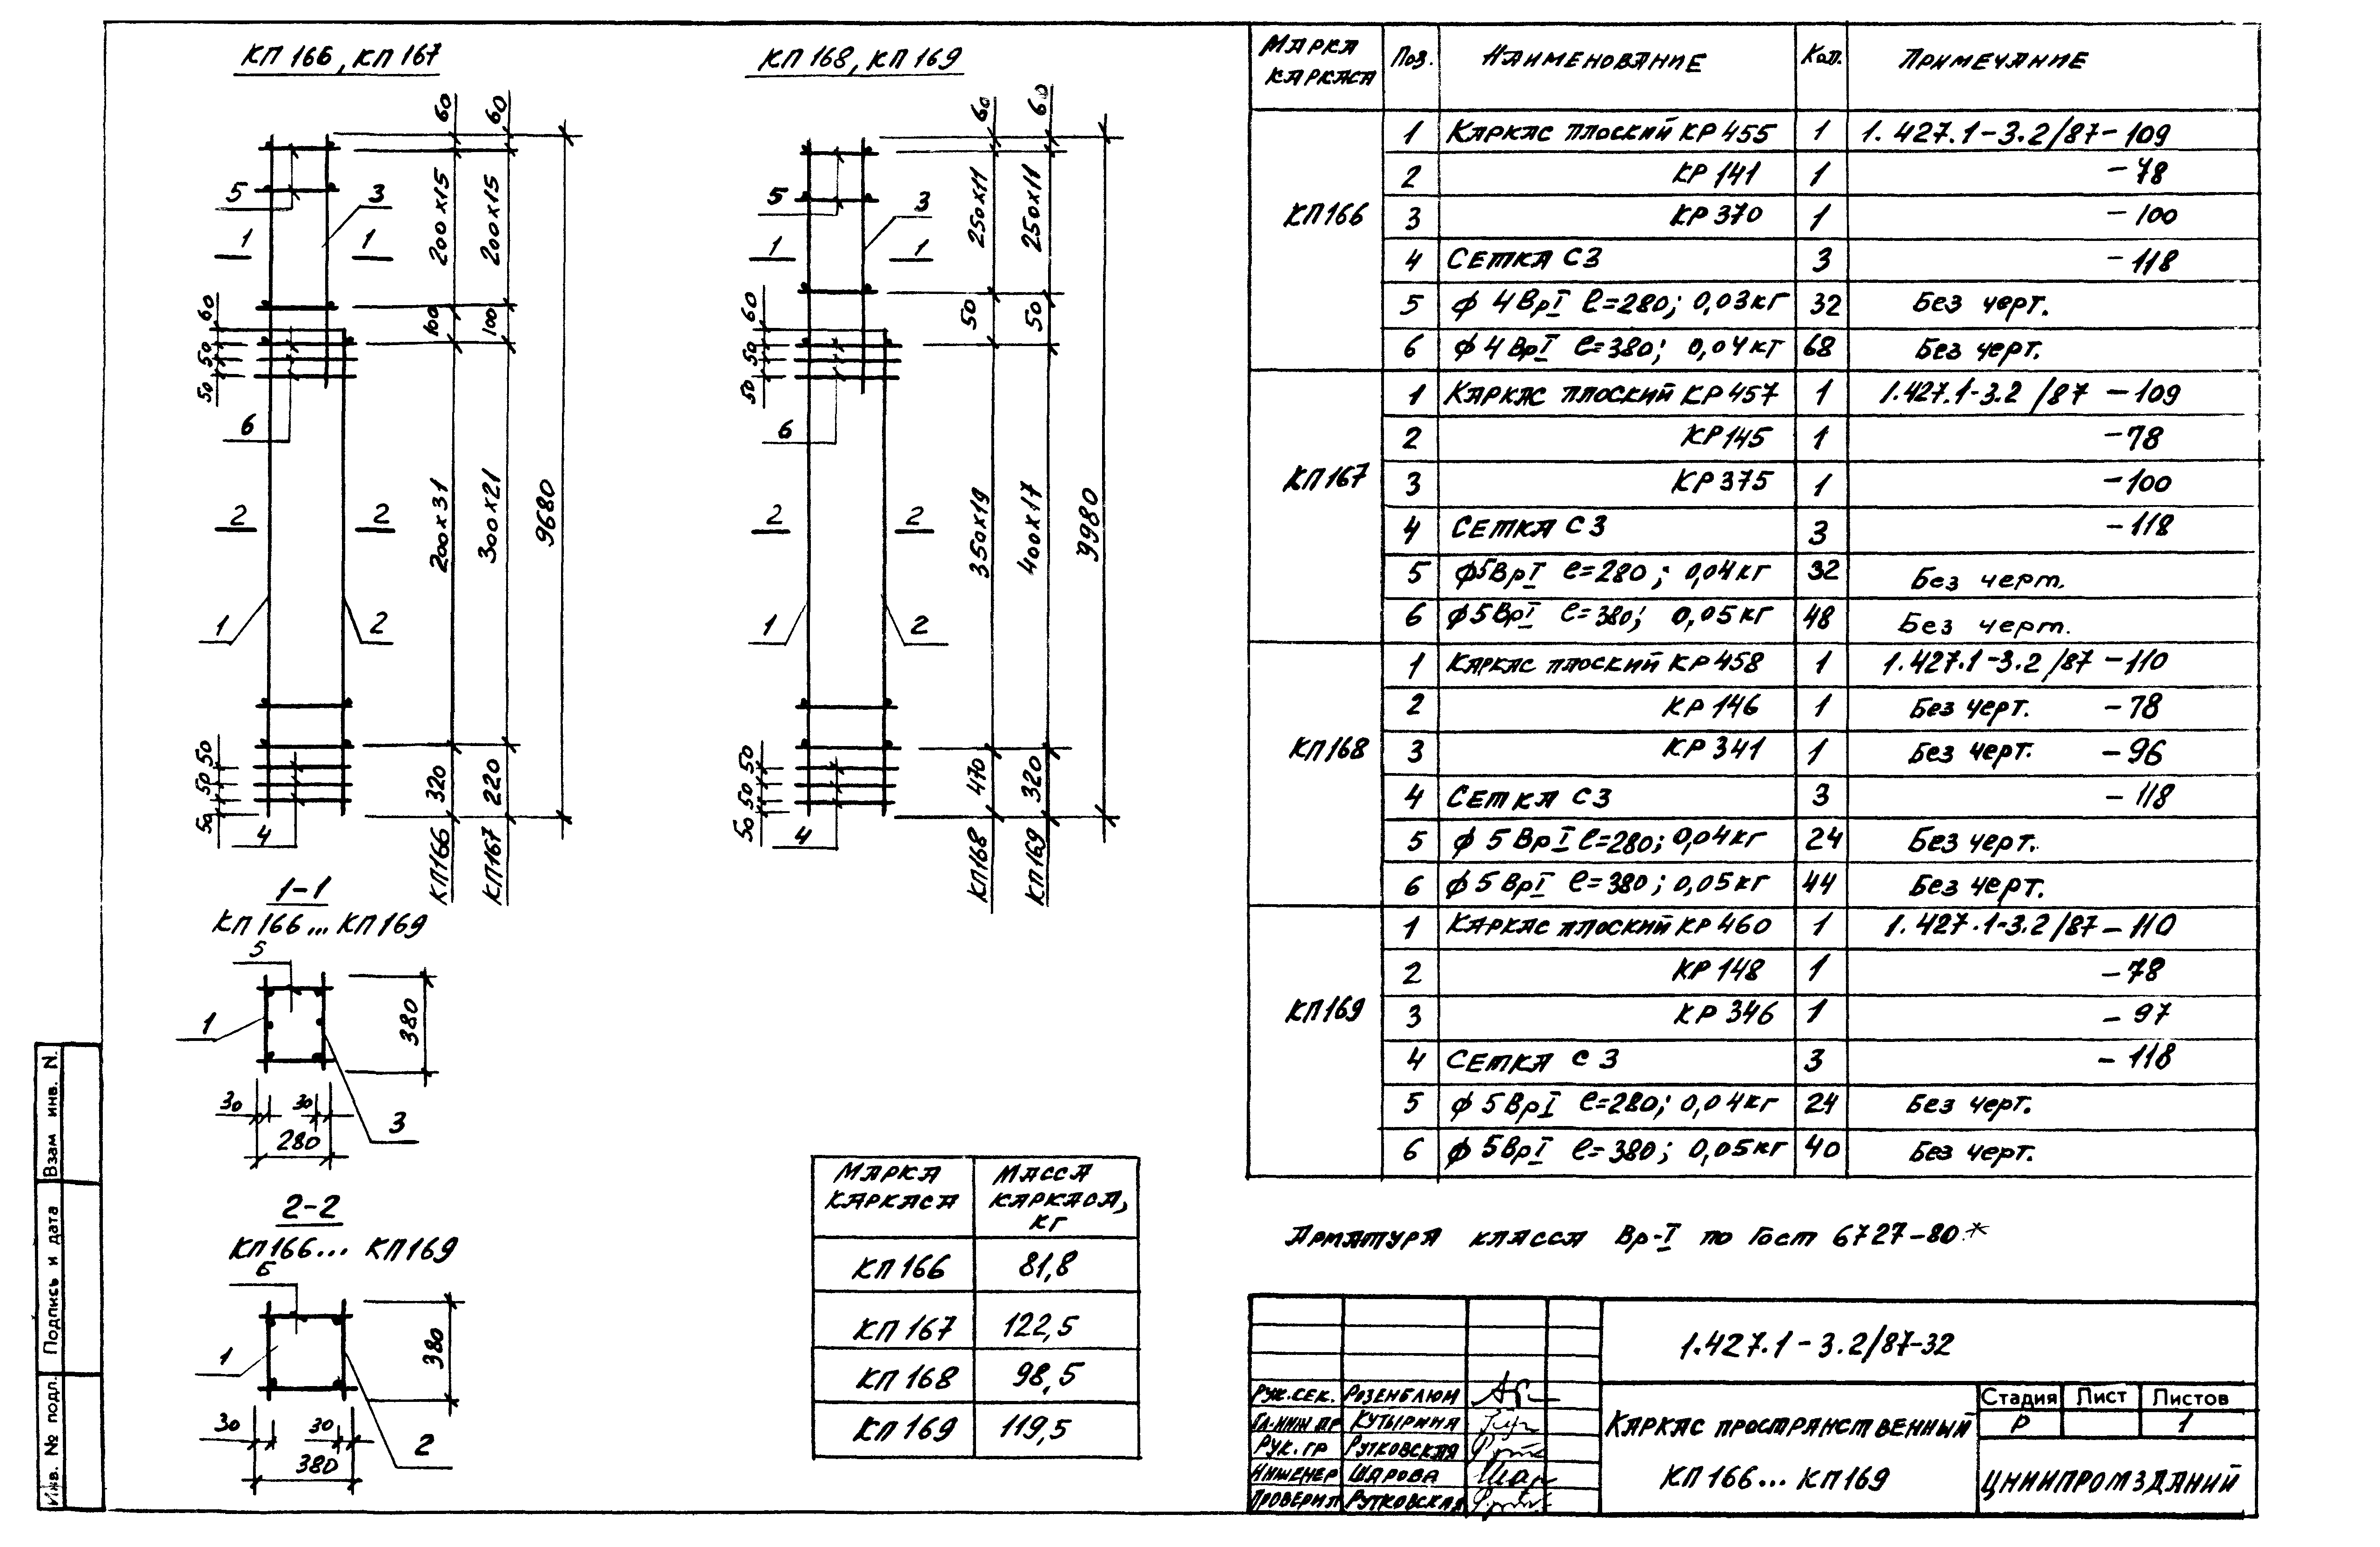 КП 166, КП 167
60
60
200х15
200х15
100
100
200х31
300х21
9680
320
220
КП166
КП167
5
3
1
1
60
50
50
6
2
2
1
2
50
50
50
4
КП 168, КП 169
60
60
250х11
250х11
50
50
350х19
400х17
9980
470
320
КП168
КП169
5
3
1
1
60
50
50
6
2
2
1
2
50
50
50
4
1-1
КП 166... КП 169
5
1
380
30
30
280
3
2-2
КП166... КП169
Б
1
380
30
30
380
2
Марка каркаса Масса каркаса, кг
КП 166 81,8
КП 167 122,5
КП 168 98,5
КП 169 119,5
Марка каркаса Поз. Наименование Кол. Примечание
КП166
1 Каркас плоский КР 455 1 1.427.1-3.2/87-109
2 КР 141 1 -78
3 КР 370 1 -100
4 Сетка С3 3 -118
5 ф 4ВрI ℓ=280; 0,03кг 32 Без черт.
6 ф 4ВрI ℓ=380; 0,04кг 68 Без черт.
КП167
1 Каркас плоский КР 457 1 1.427.1-3.2/87-109
2 КР145 1 -78
3 КР 375 1 -100
4 Сетка С3 3 -118
5 ф5ВрI ℓ=280; 0,04кг 32 Без черт.
6 ф5ВрI ℓ=380; 0,05кг 48 Без черт.
КП168
1 Каркас плоский КР 458 1 1.427.1-3.2/87-110
2 КР 146 1 Без черт. -78
3 КР 341 1 Без черт. -96
4 Сетка С3 3 -118
5 ф 5 ВрI ℓ=280; 0,04кг 24 Без черт.
6 ф 5 ВрI ℓ=380; 0,05кг 44 Без черт.
КП169
1 Каркас плоский КР 460 1 1.427.1-3.2/87-110
2 КР 148 1 -78
3 КР 346 1 -97
4 Сетка С3 3 -118
5 ф 5ВрI ℓ=280; 0,04кг 24 Без черт.
6 ф 5ВрI ℓ=380; 0,05кг 40 Без черт.
Арматура класса Вр-I по Гост 6727-80*
1.427.1-3.2/87-32
Рук.сек. Розенблюм
Гл.инж.пр Кутырина
Рук.гр Рутковская
Инженер Шарова
Проверил Рутковская
Каркас пространственный
КП 166... КП169
Стадия Лист Листов
Р 1
ЦНИИПРОМЗДАНИЙ
Взам инв. N.
Подпись и дата
Инв. № подл.